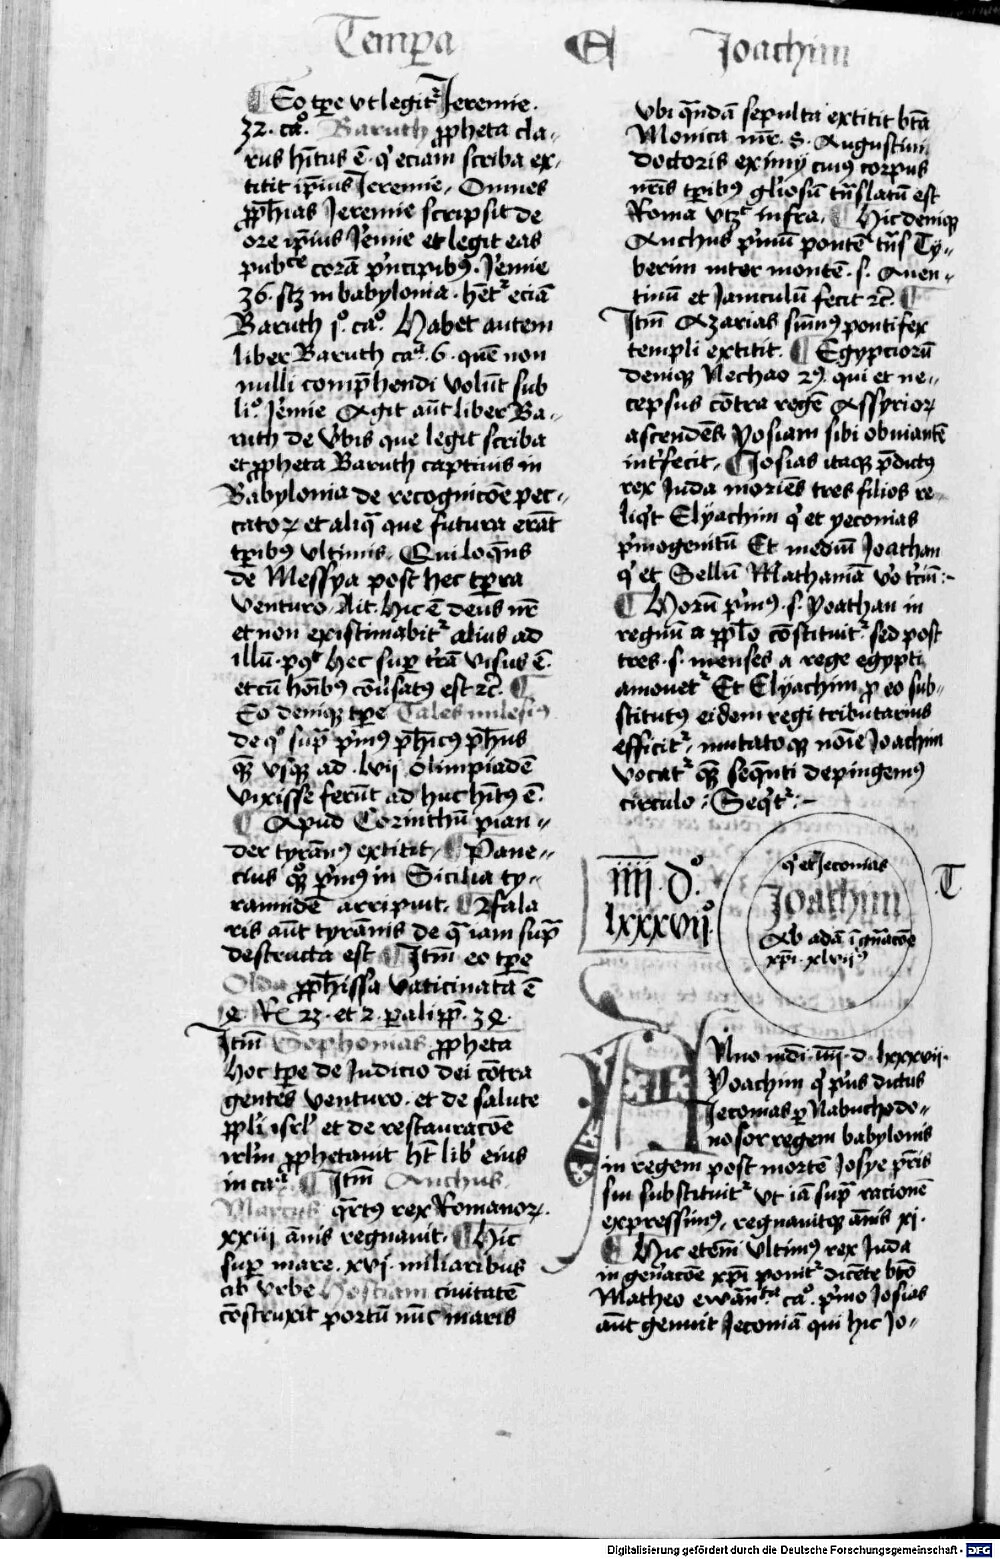 Temp̄a
Et
Joachim
Eo tp̄e vt legitᷣ Jeremie.
32. ca⁰. Baruth ꝓpheta cla-
rus hītus ē. qͥ eciam scriba ex-
titit ip̄ius Jeremie. Omnes
ꝓph̄ias Jeremie scripsit de
ore ip̄ius Jēmie et legit eas
pubᶜᵉ corā pͥncipibꝰ. Jēmie
36. sꝫ in babylonia. hētᷣ eciā
Baruth j⁰. ca⁰. Habet autem
liber Baruth caᵃ. 6. quē non
nulli comp̄hendi volūt sub
li⁰. Jēmie Agit aūt liber Ba-
ruth de v̄bis que legit scriba
et ꝓpheta Baruth captiuis in
Babylonia de recognicōe pec-
catoꝝ et aliq̄ que futura erāt
tp̄ibꝰ vltimis. Qui loqēns
de Messya post hec tp̄ra
venturo. Ait. Hic ē deus nr̄
et non existimabitᷣ alius ad
illū. pꝰᵗ hec sup̲ t̄rā visus ē.
et cū hōibꝰ cōūsatꝰ est ꝛc̄.
Eo deniqꝫ tp̄e Tales milesiꝰ
de qͦ sup̄ pͥmꝰ ph̄icꝰ ph̄us
qͣꝫ vsqꝫ ad .lvij. olimpiadē
vixisse ferūt ad huc hītꝰ ē.
Apud Corinthū pian-
der tyrānꝰ extitit. Pane-
cius qͦqꝫ pͥmꝰ in Sicilia ty-
rannidē arripuit. Ffala
ris aūt tyrānis de qͣ iam sup̄
destructa est Itm̄ eo tp̄e
Olda ꝓph̄issa vaticinata ē
4 R̄ 22. et 2. p̲alipp̄. 34.
Itm̄ Sophonias ꝓpheta
hoc tp̄e de Judicio dei cōtra
gentes venturo. et de salute
ppl̄i isrl̄ et de restauracōe
irl̄m ꝓphetauit ht̄ lib̄ eius
in caᵃ. Itm̄ Anchus
Marcus qͣrtꝰ rex Romanoꝝ.
xxiij ānis regnauit. Hic
sup̲ mare. xvj. miliaribus
ab vrbe Hostiam ciuitatē
cōstruxit portū nūc maris
vbi qͦndā sepulta extitit bt̄a
Monica mr̄. S. Augustini
doctoris eximij cuiꝰ corpus
nr̄is tp̄ibꝰ gl̄iosū tn̄slatū est
Roma vtꝫᷣ infra. Hic deniqꝫ
Anchus pͥmū pontē tn̄s Ty-
berim inter montē. s. Auen-
tinū et Janiculū fecit ꝛc̄.
Itm̄ Azarias sūmꝰ pontifex
templi extitit. Egypciorū
deniqꝫ Nechao rꝰ. qui et ne-
cepsus cōtra regē Assyrioꝝ
ascendēs Yosiam sibi obuiantē
int̄fecit. Josias itaqꝫ p̄dictꝰ
rex Juda moriēs tres filios re-
liqͥt Elyachim qͥ et yeconias
pͥmogenitū Et mediū Joathan
qͥ et Sellū Mathaniā v̄o t̄ciū:-
Horū pͥmꝰ. s. Yoathan in
regnū a ppl̄o cōstituitᷣ. sed post
tres. s. menses a rege egypti
amouetᷣ Et Elyachim ꝓ eo sub-
stitutꝰ eidem regi tributarius
efficitᷣ. mutatoqꝫ noīe Joachim
vocatᷣ qͣꝫ seqͥnti depingemꝰ
circulo: Seqͥtᷣ:-
iiij. d⁰.
lxxxvij⁰
qͥ et Jeconias
Joachim
Ab adā ī gn̄acōe
xp̄i. xlvijꝰ
T
Anno mdi. iiij. d. lxxxvij.
Yoachim qͥ pͥus dictus
Jeconias p̲ Nabuchodo-
nosor regem babylonis
in regem post mortē Josye pr̄is
sui substituitᷣ vt iā sup̄ racionē
expressimꝰ. regnauitqꝫ ānis xj.
Hic etem̄ vltimꝰ rex Juda
in gen̄acōe xp̄i ponitᷣ dicēte bt̄o
Matheo ewān⁰. ca⁰. pͥmo Josias
aūt genuit Jeconiā qui hic Jo-
Digitalisierung gefördert durch die Deutsche Forschungsgemeinschaft - DFG